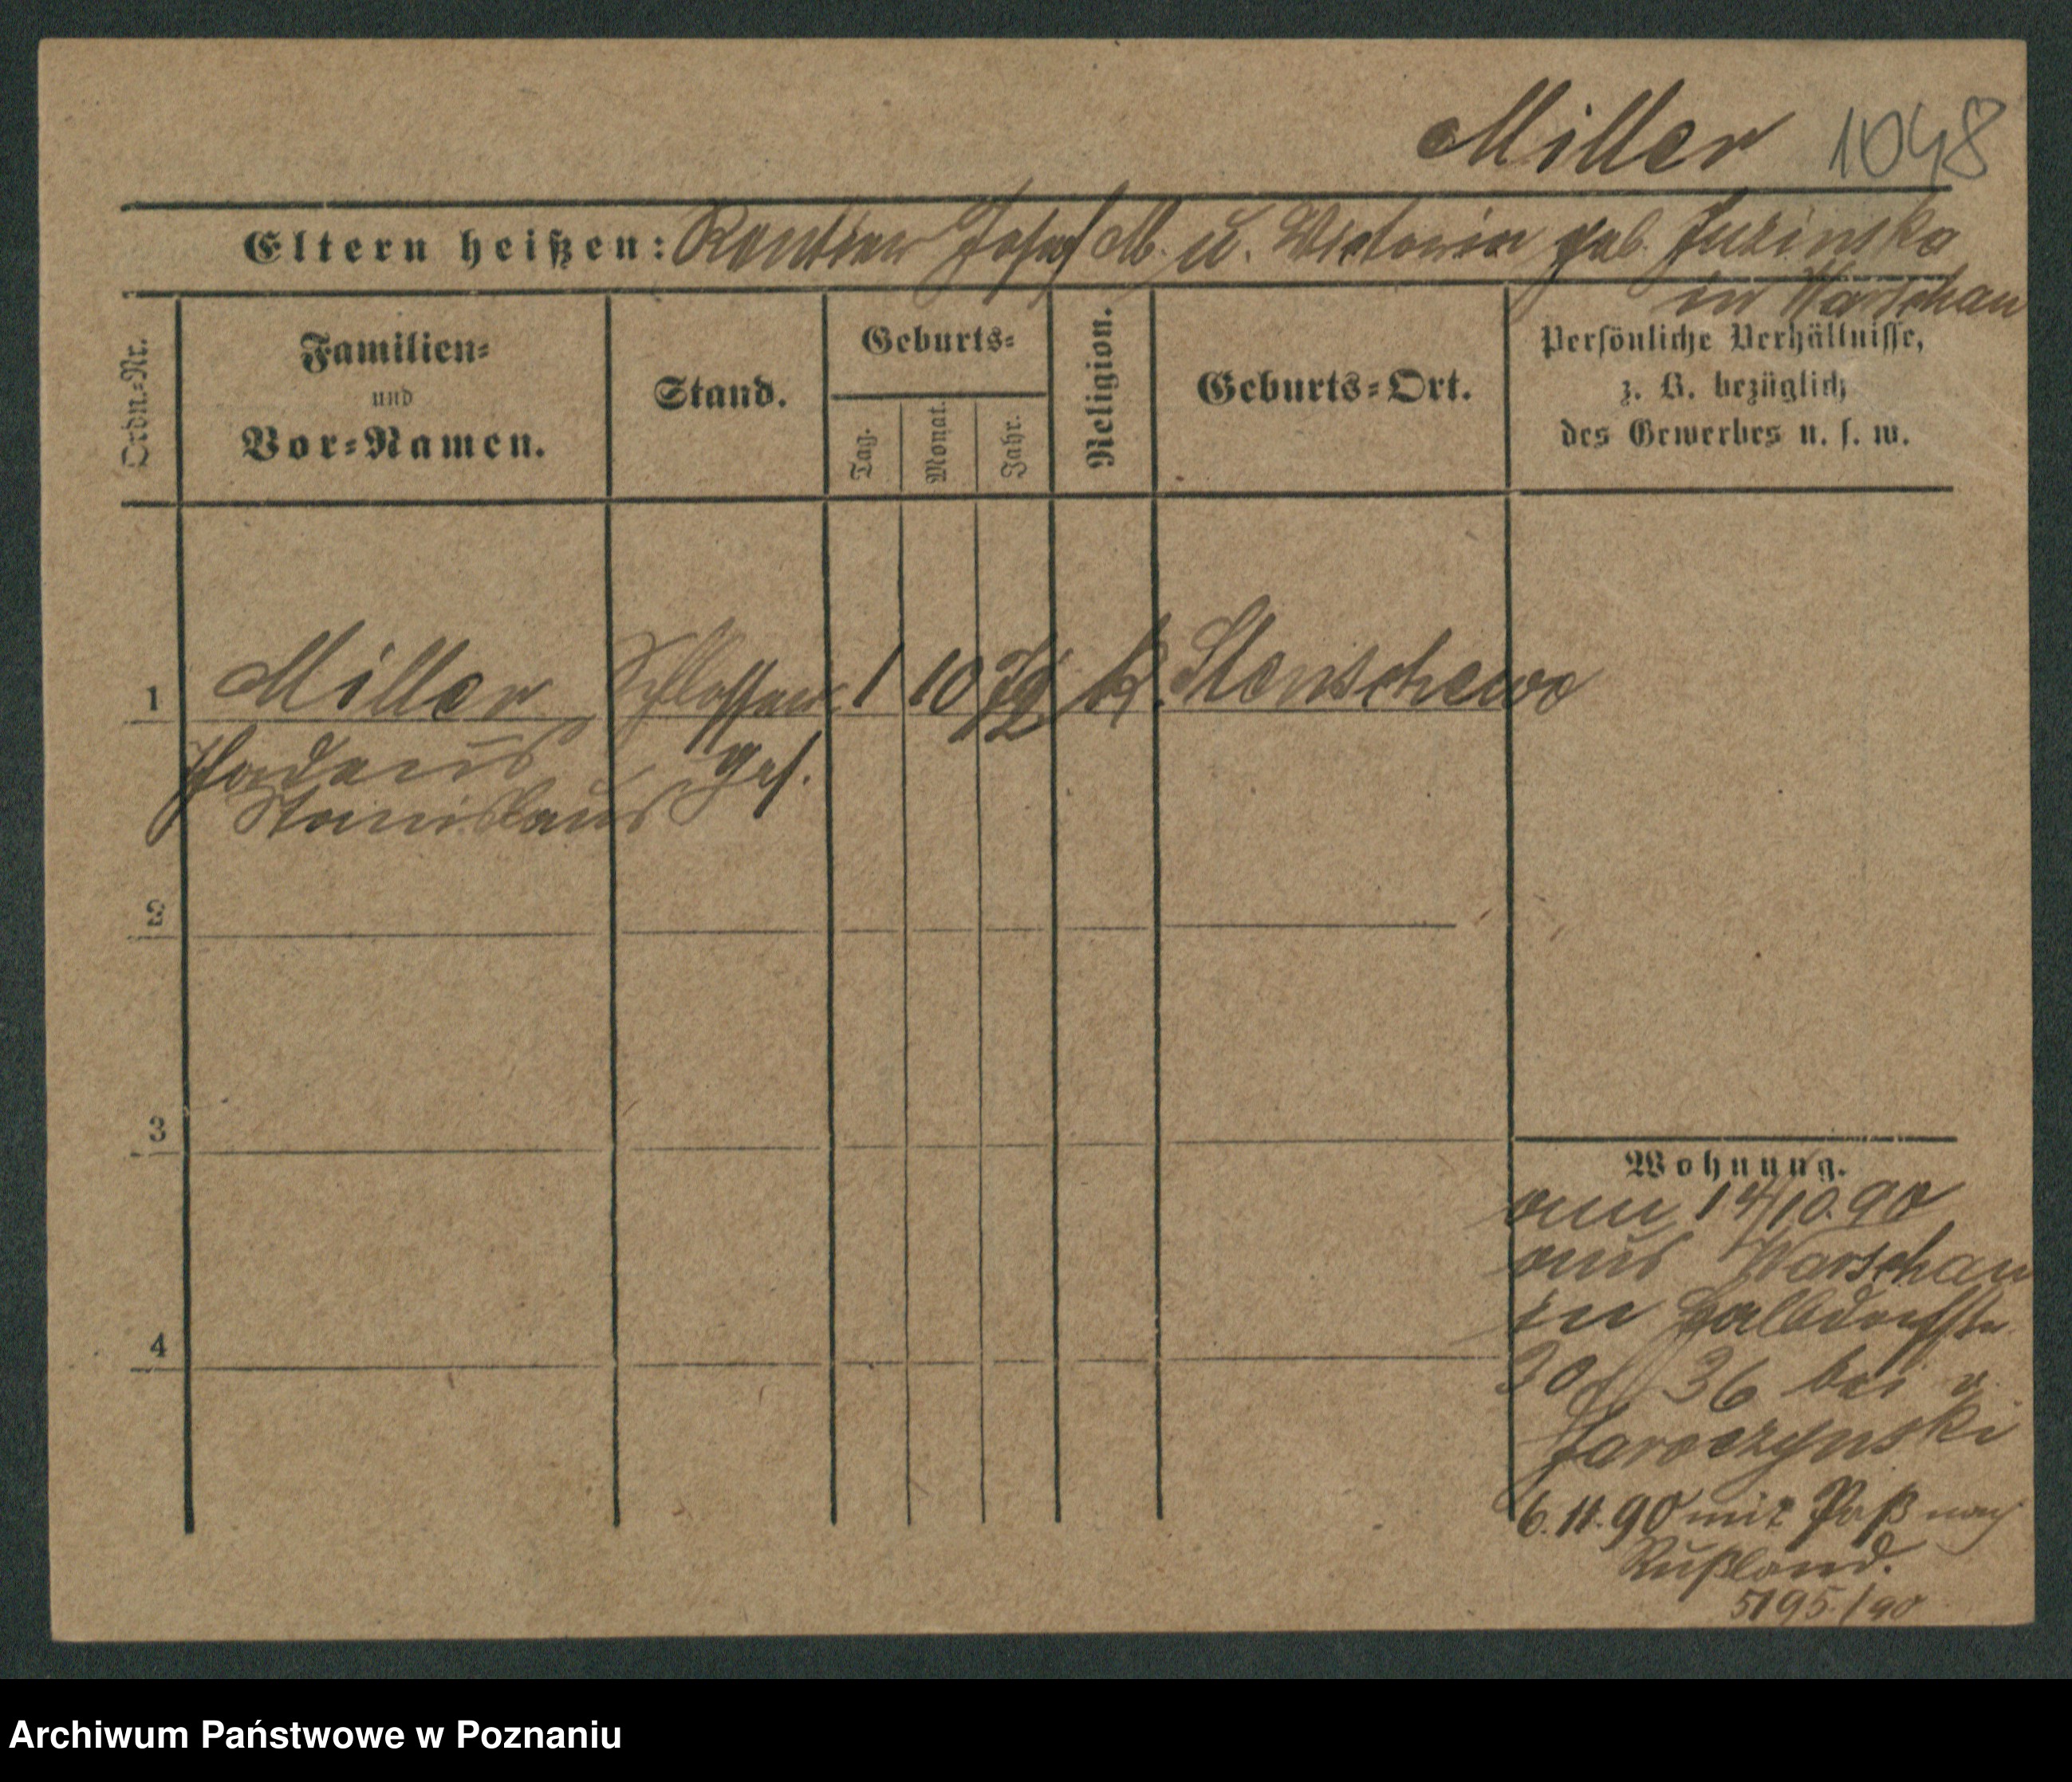 Miller 1048
Eltern heißen: Rentier Josef M. u. Victoria geb. Juzinska
in Warschau
Ordn.=Nr.
Familien=
und
Vor=Namen.
Stand.
Geburts=
Tag.
Monat.
Jahr.
Religion.
Geburts=Ort.
Persönliche Verhältnisse,
z. B. bezüglich
des Gewerbes u. s. w.
1 Miller Schlosser 1 10 K. Stenschewo
Thadeus ges.
Stanislaus
2
3
4
Wohnung.
am 14/10.90
aus Warschau
zu Halbdorfstr
36 bei v.
Jaroczynski
6.11.90 mit Paß nach
Rußland.
5195/90
Archiwum Państwowe w Poznaniu